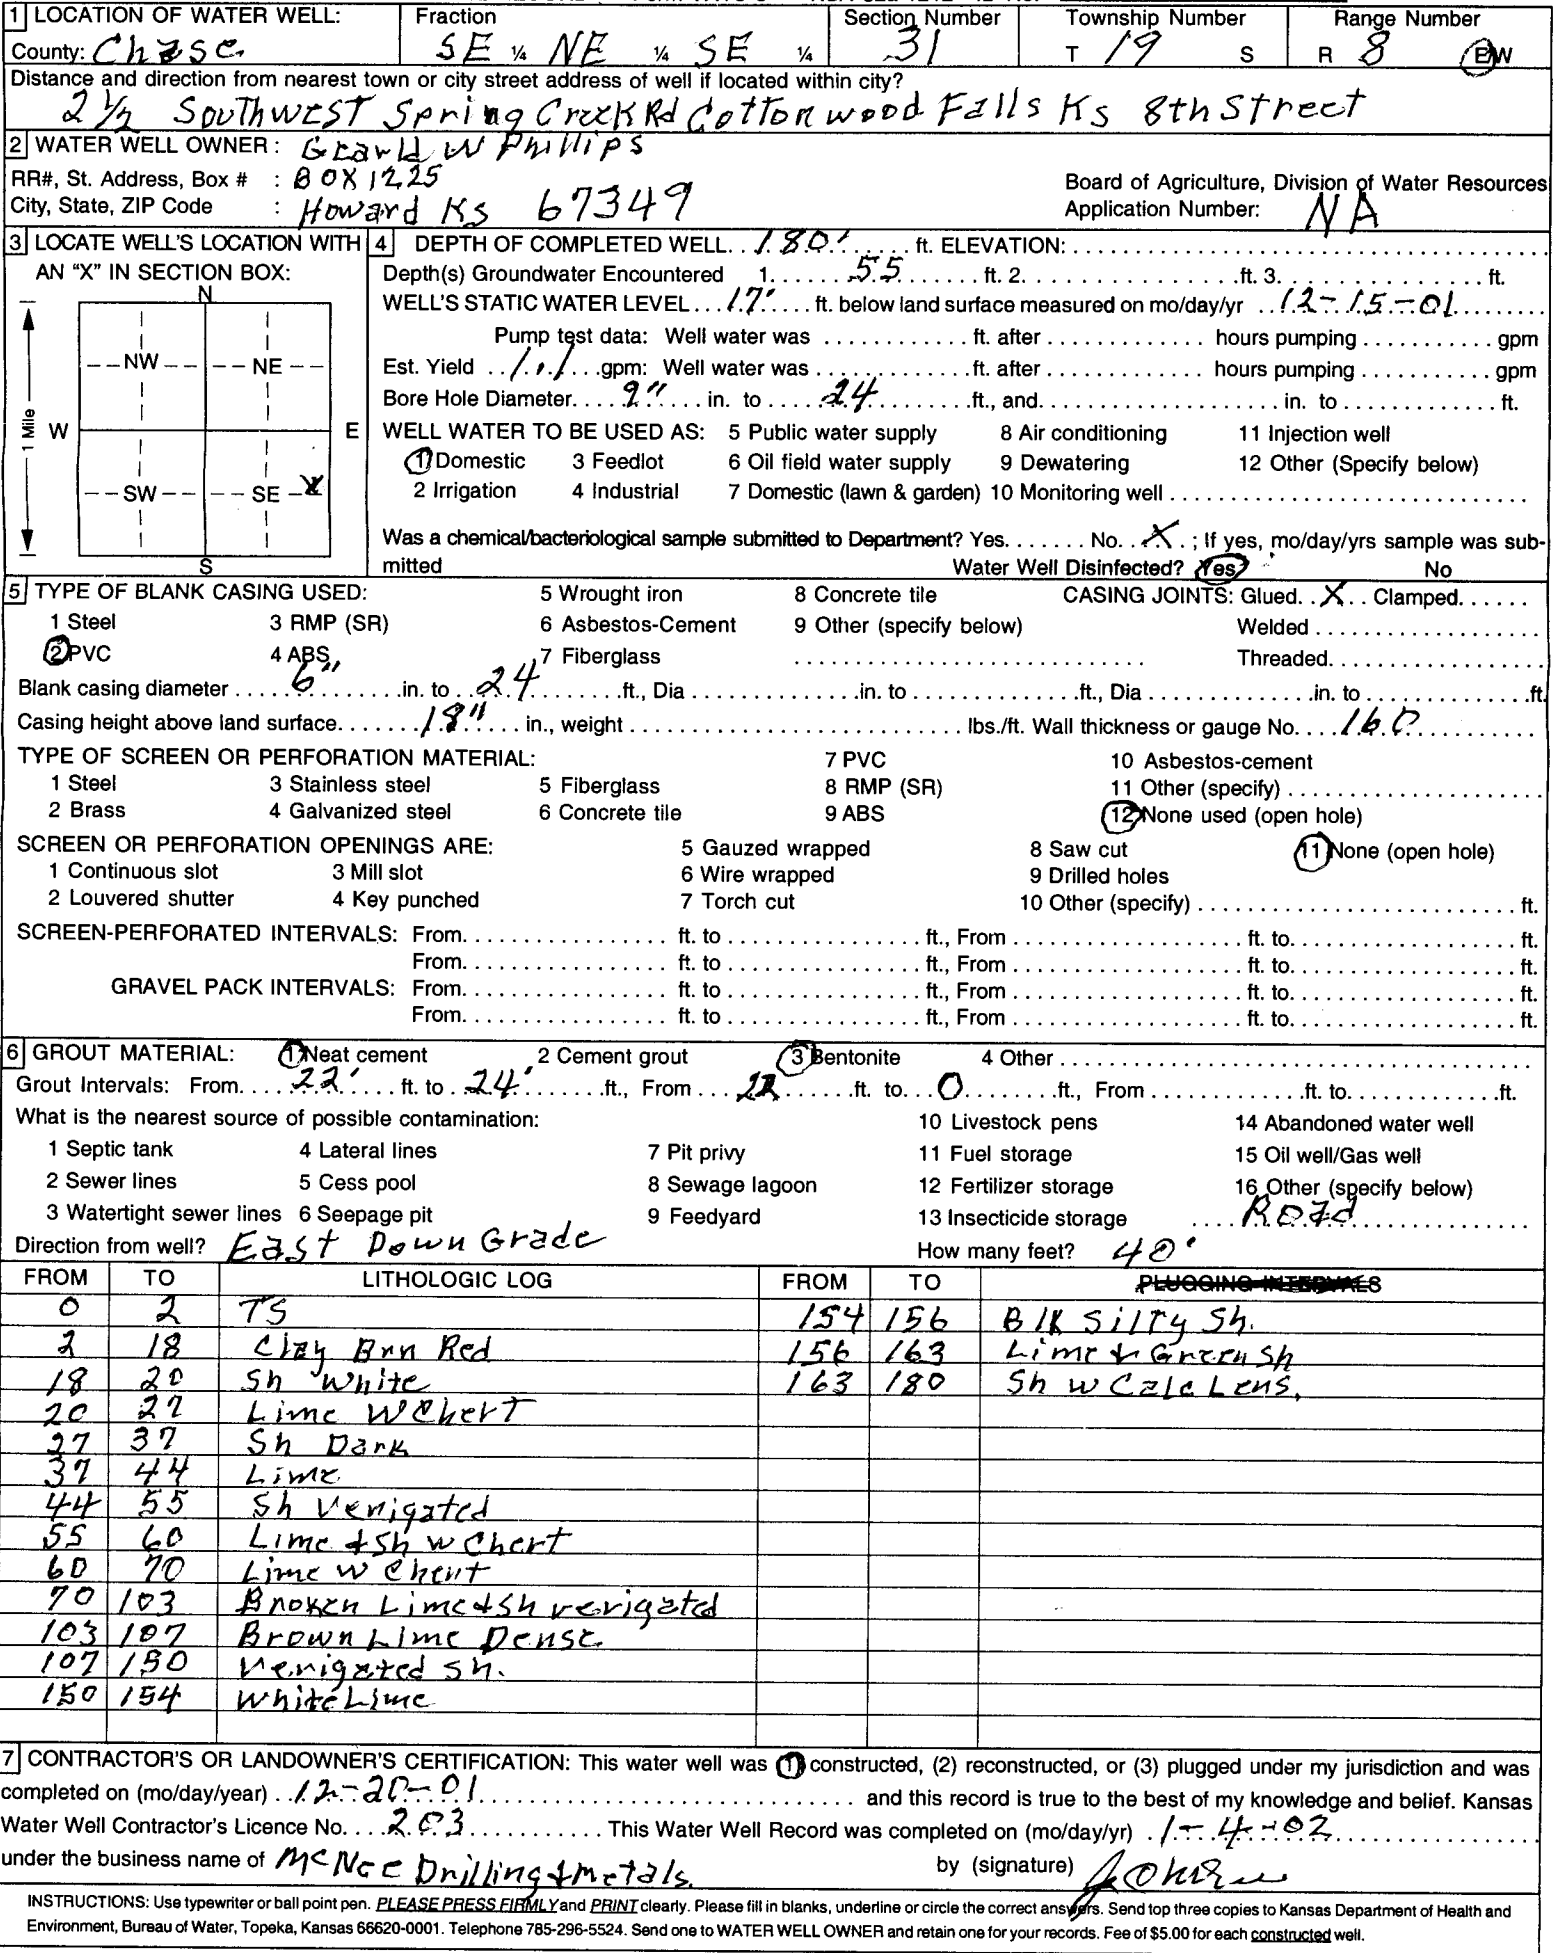 1 LOCATION OF WATER WELL: Fraction Section Number Township Number Range Number
County: Chase SE ¼ NE ¼ SE ¼ 31 T 19 S R 8 E/W
Distance and direction from nearest town or city street address of well if located within city?
2 1/2 Southwest Spring Creek Rd Cottonwood Falls Ks 8th Street
2 WATER WELL OWNER: Gerald W Phillips
RR#, St. Address, Box # : BOX 1225 Board of Agriculture, Division of Water Resources
City, State, ZIP Code : Howard Ks 67349 Application Number: NA
3 LOCATE WELL'S LOCATION WITH AN "X" IN SECTION BOX:
N
NW NE
1 Mile W E
SW SE X
S
4 DEPTH OF COMPLETED WELL. . 180' . . ft. ELEVATION: . . .
Depth(s) Groundwater Encountered 1. 55 ft. 2. ft. 3. ft.
WELL'S STATIC WATER LEVEL . . 17' . . ft. below land surface measured on mo/day/yr 12-15-01
Pump test data: Well water was . . . ft. after . . . hours pumping . . . gpm
Est. Yield . . 1.1 . . gpm: Well water was . . . ft. after . . . hours pumping . . . gpm
Bore Hole Diameter. . 9" . . in. to . . 24 . . ft., and. . . in. to . . . ft.
WELL WATER TO BE USED AS: 5 Public water supply 8 Air conditioning 11 Injection well
1 Domestic 3 Feedlot 6 Oil field water supply 9 Dewatering 12 Other (Specify below)
2 Irrigation 4 Industrial 7 Domestic (lawn & garden) 10 Monitoring well . . .
Was a chemical/bacteriological sample submitted to Department? Yes. . . No. . X . ; If yes, mo/day/yrs sample was sub-
mitted Water Well Disinfected? Yes No
5 TYPE OF BLANK CASING USED: 5 Wrought iron 8 Concrete tile CASING JOINTS: Glued. . X . . Clamped. . .
1 Steel 3 RMP (SR) 6 Asbestos-Cement 9 Other (specify below) Welded . . .
2 PVC 4 ABS 7 Fiberglass . . . Threaded. . .
Blank casing diameter . . 6" . . in. to . . 24 . . ft., Dia . . . in. to . . . ft., Dia . . . in. to . . . ft.
Casing height above land surface. . 18" . . in., weight . . . lbs./ft. Wall thickness or gauge No. . . 160
TYPE OF SCREEN OR PERFORATION MATERIAL: 7 PVC 10 Asbestos-cement
1 Steel 3 Stainless steel 5 Fiberglass 8 RMP (SR) 11 Other (specify) . . .
2 Brass 4 Galvanized steel 6 Concrete tile 9 ABS 12 None used (open hole)
SCREEN OR PERFORATION OPENINGS ARE: 5 Gauzed wrapped 8 Saw cut 11 None (open hole)
1 Continuous slot 3 Mill slot 6 Wire wrapped 9 Drilled holes
2 Louvered shutter 4 Key punched 7 Torch cut 10 Other (specify) . . . ft.
SCREEN-PERFORATED INTERVALS: From. . . ft. to . . . ft., From . . . ft. to. . . ft.
From. . . ft. to . . . ft., From . . . ft. to. . . ft.
GRAVEL PACK INTERVALS: From. . . ft. to . . . ft., From . . . ft. to. . . ft.
From. . . ft. to . . . ft., From . . . ft. to. . . ft.
6 GROUT MATERIAL: 1 Neat cement 2 Cement grout 3 Bentonite 4 Other . . .
Grout Intervals: From. . 22' . . ft. to . . 24' . . ft., From . . 22 . . ft. to. . 0 . . ft., From . . . ft. to. . . ft.
What is the nearest source of possible contamination: 10 Livestock pens 14 Abandoned water well
1 Septic tank 4 Lateral lines 7 Pit privy 11 Fuel storage 15 Oil well/Gas well
2 Sewer lines 5 Cess pool 8 Sewage lagoon 12 Fertilizer storage 16 Other (specify below)
3 Watertight sewer lines 6 Seepage pit 9 Feedyard 13 Insecticide storage . . Road
Direction from well? East Down Grade How many feet? 40'
FROM TO LITHOLOGIC LOG FROM TO PLUGGING INTERVALS
0 2 TS 154 156 Blk Silty Sh.
2 18 Clay Brn Red 156 163 Lime & Green Sh
18 20 Sh White 163 180 Sh W Calc Lens.
20 27 Lime W Chert
27 37 Sh Dark
37 44 Lime
44 55 Sh Verigated
55 60 Lime & Sh w Chert
60 70 Lime w Chert
70 103 Broken Lime & Sh verigated
103 107 Brown Lime Dense
107 150 Verigated Sh.
150 154 White Lime
7 CONTRACTOR'S OR LANDOWNER'S CERTIFICATION: This water well was (1) constructed, (2) reconstructed, or (3) plugged under my jurisdiction and was
completed on (mo/day/year) . 12-20-01 . . . and this record is true to the best of my knowledge and belief. Kansas
Water Well Contractor's Licence No. . . 203 . . . This Water Well Record was completed on (mo/day/yr) . 1-4-02
under the business name of McNee Drilling & Metals. by (signature)
INSTRUCTIONS: Use typewriter or ball point pen. PLEASE PRESS FIRMLY and PRINT clearly. Please fill in blanks, underline or circle the correct answers. Send top three copies to Kansas Department of Health and
Environment, Bureau of Water, Topeka, Kansas 66620-0001. Telephone 785-296-5524. Send one to WATER WELL OWNER and retain one for your records. Fee of $5.00 for each constructed well.